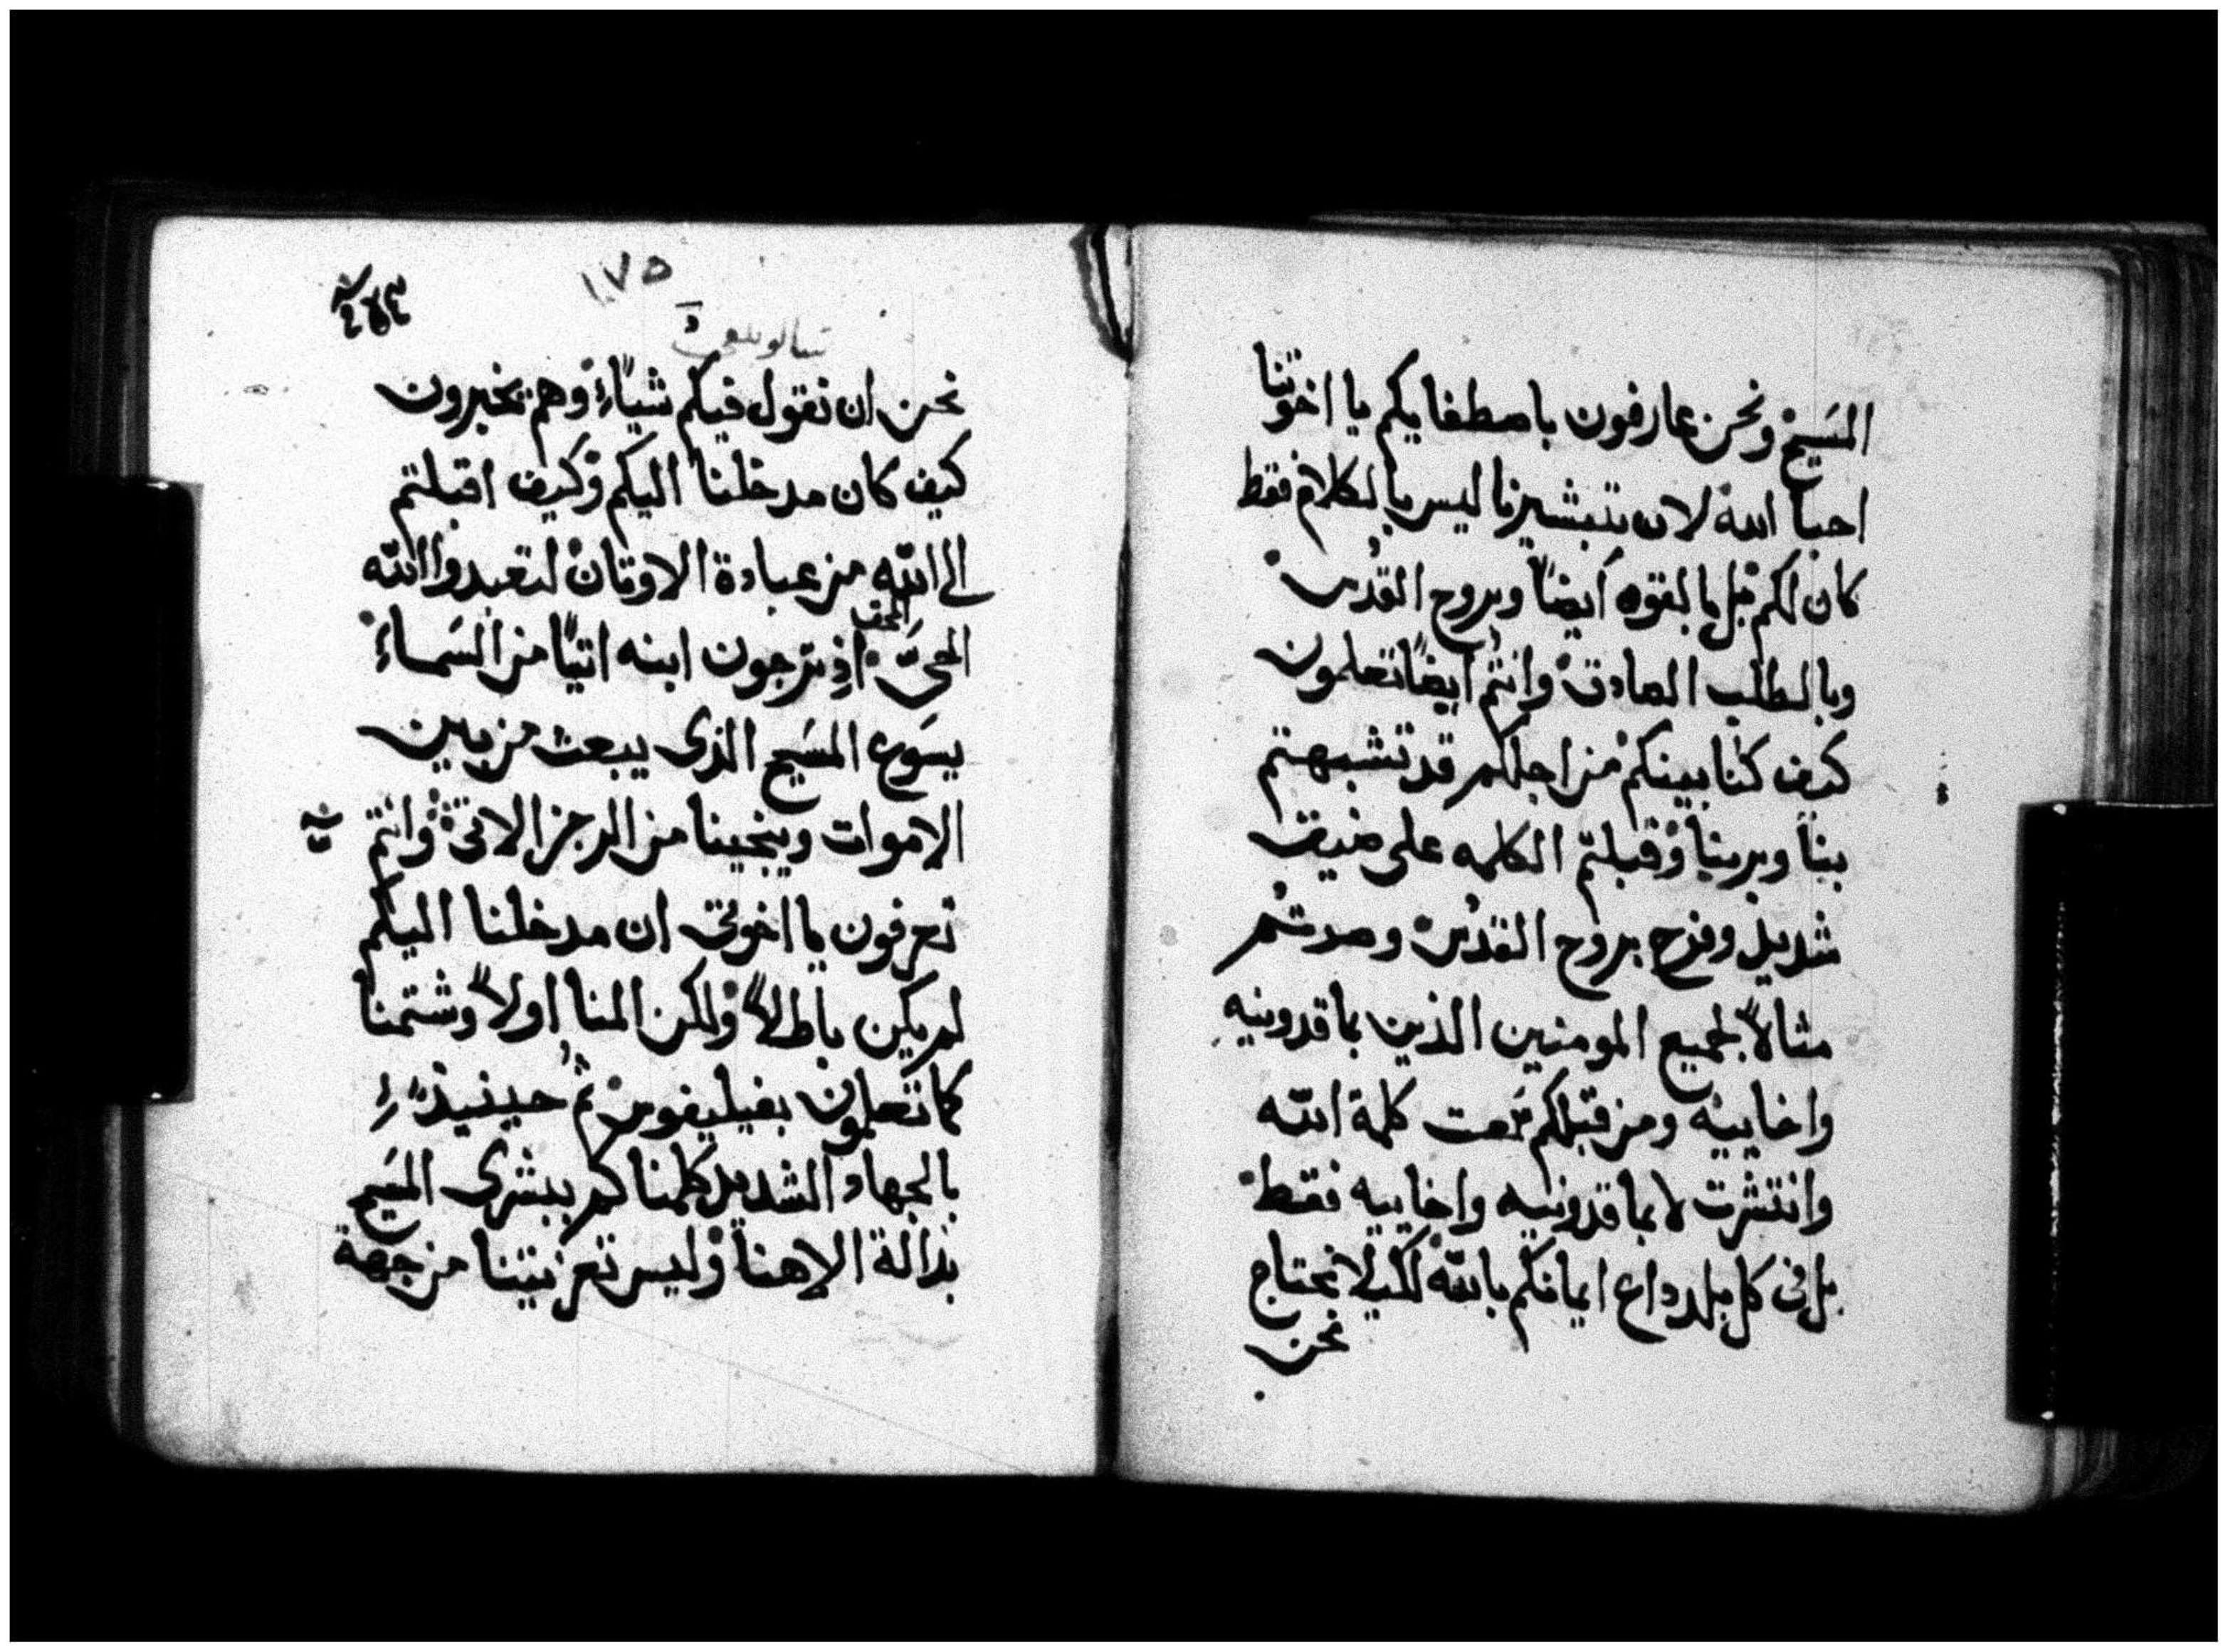 المسَيح ونحن عارفون باصطفايكم يا اخوتنا
احبا الله لان تبشيرنا ليس بالكلام فقط
كان لكم بل بالقوه أيضاً وبروح القدُس
وبالطلب الصادق وانتُم ايضاً تعلمون
كيف كنا بينكم من اجلكم قد تشبهتم
بنا وبربنا وقبلتم الكلمه على ضيق
شديد وفرح بروح القدُس وصرتم
مثالاً لجميع المومنين الذين بماقدونيه
واخاييه ومن قبلكم سُمعت كلمة الله
وانتشرت لا بماقدونيه واخاييه فقط
بل في كل بلد داع ايمانكم بالله لكيلا نحتاج
نحن
١٧٥
تسالونيقى
نحن ان نقول فيكم شياًء وهم يخبرون
كيف كان مدخلنا اليكم وكيف اقبلتم
الى الله من عبادة الاوثان لتعبدوا الله
الحيَّ الحق اذ ترجون ابنه اتيًا من السَماء
يسَوع المسَيح الذى يبعث من بين
الاموات وينجينا من الرجز الاتى وانتم
تعرفون يا اخوتى ان مدخلنا اليكم
لم يكن باطلاً ولكن المنا اولاً وشتمنا
كما تعلمون بفيليفوس ثُم حينيذٍ
بالجهاد الشديد كلمناكم ببشرى المسَيح
بدالة الاهنا وليس تعزيتنا من جهة